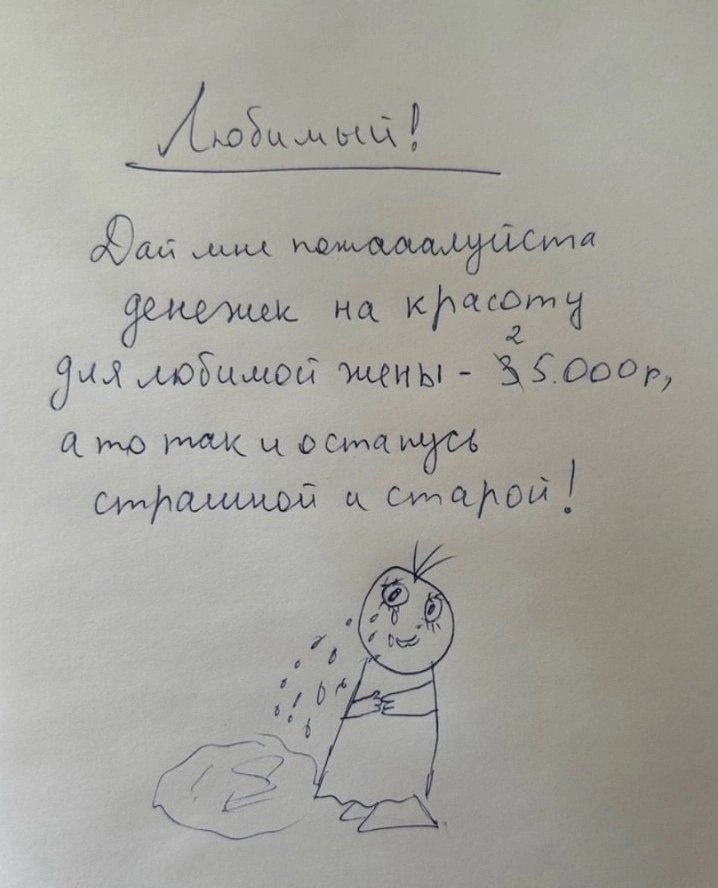 Любимый!
Дай мне пожааалуйста
денежек на красоту
2
для любимой жены - 35.000р,
а то так и останусь
страшной и старой!